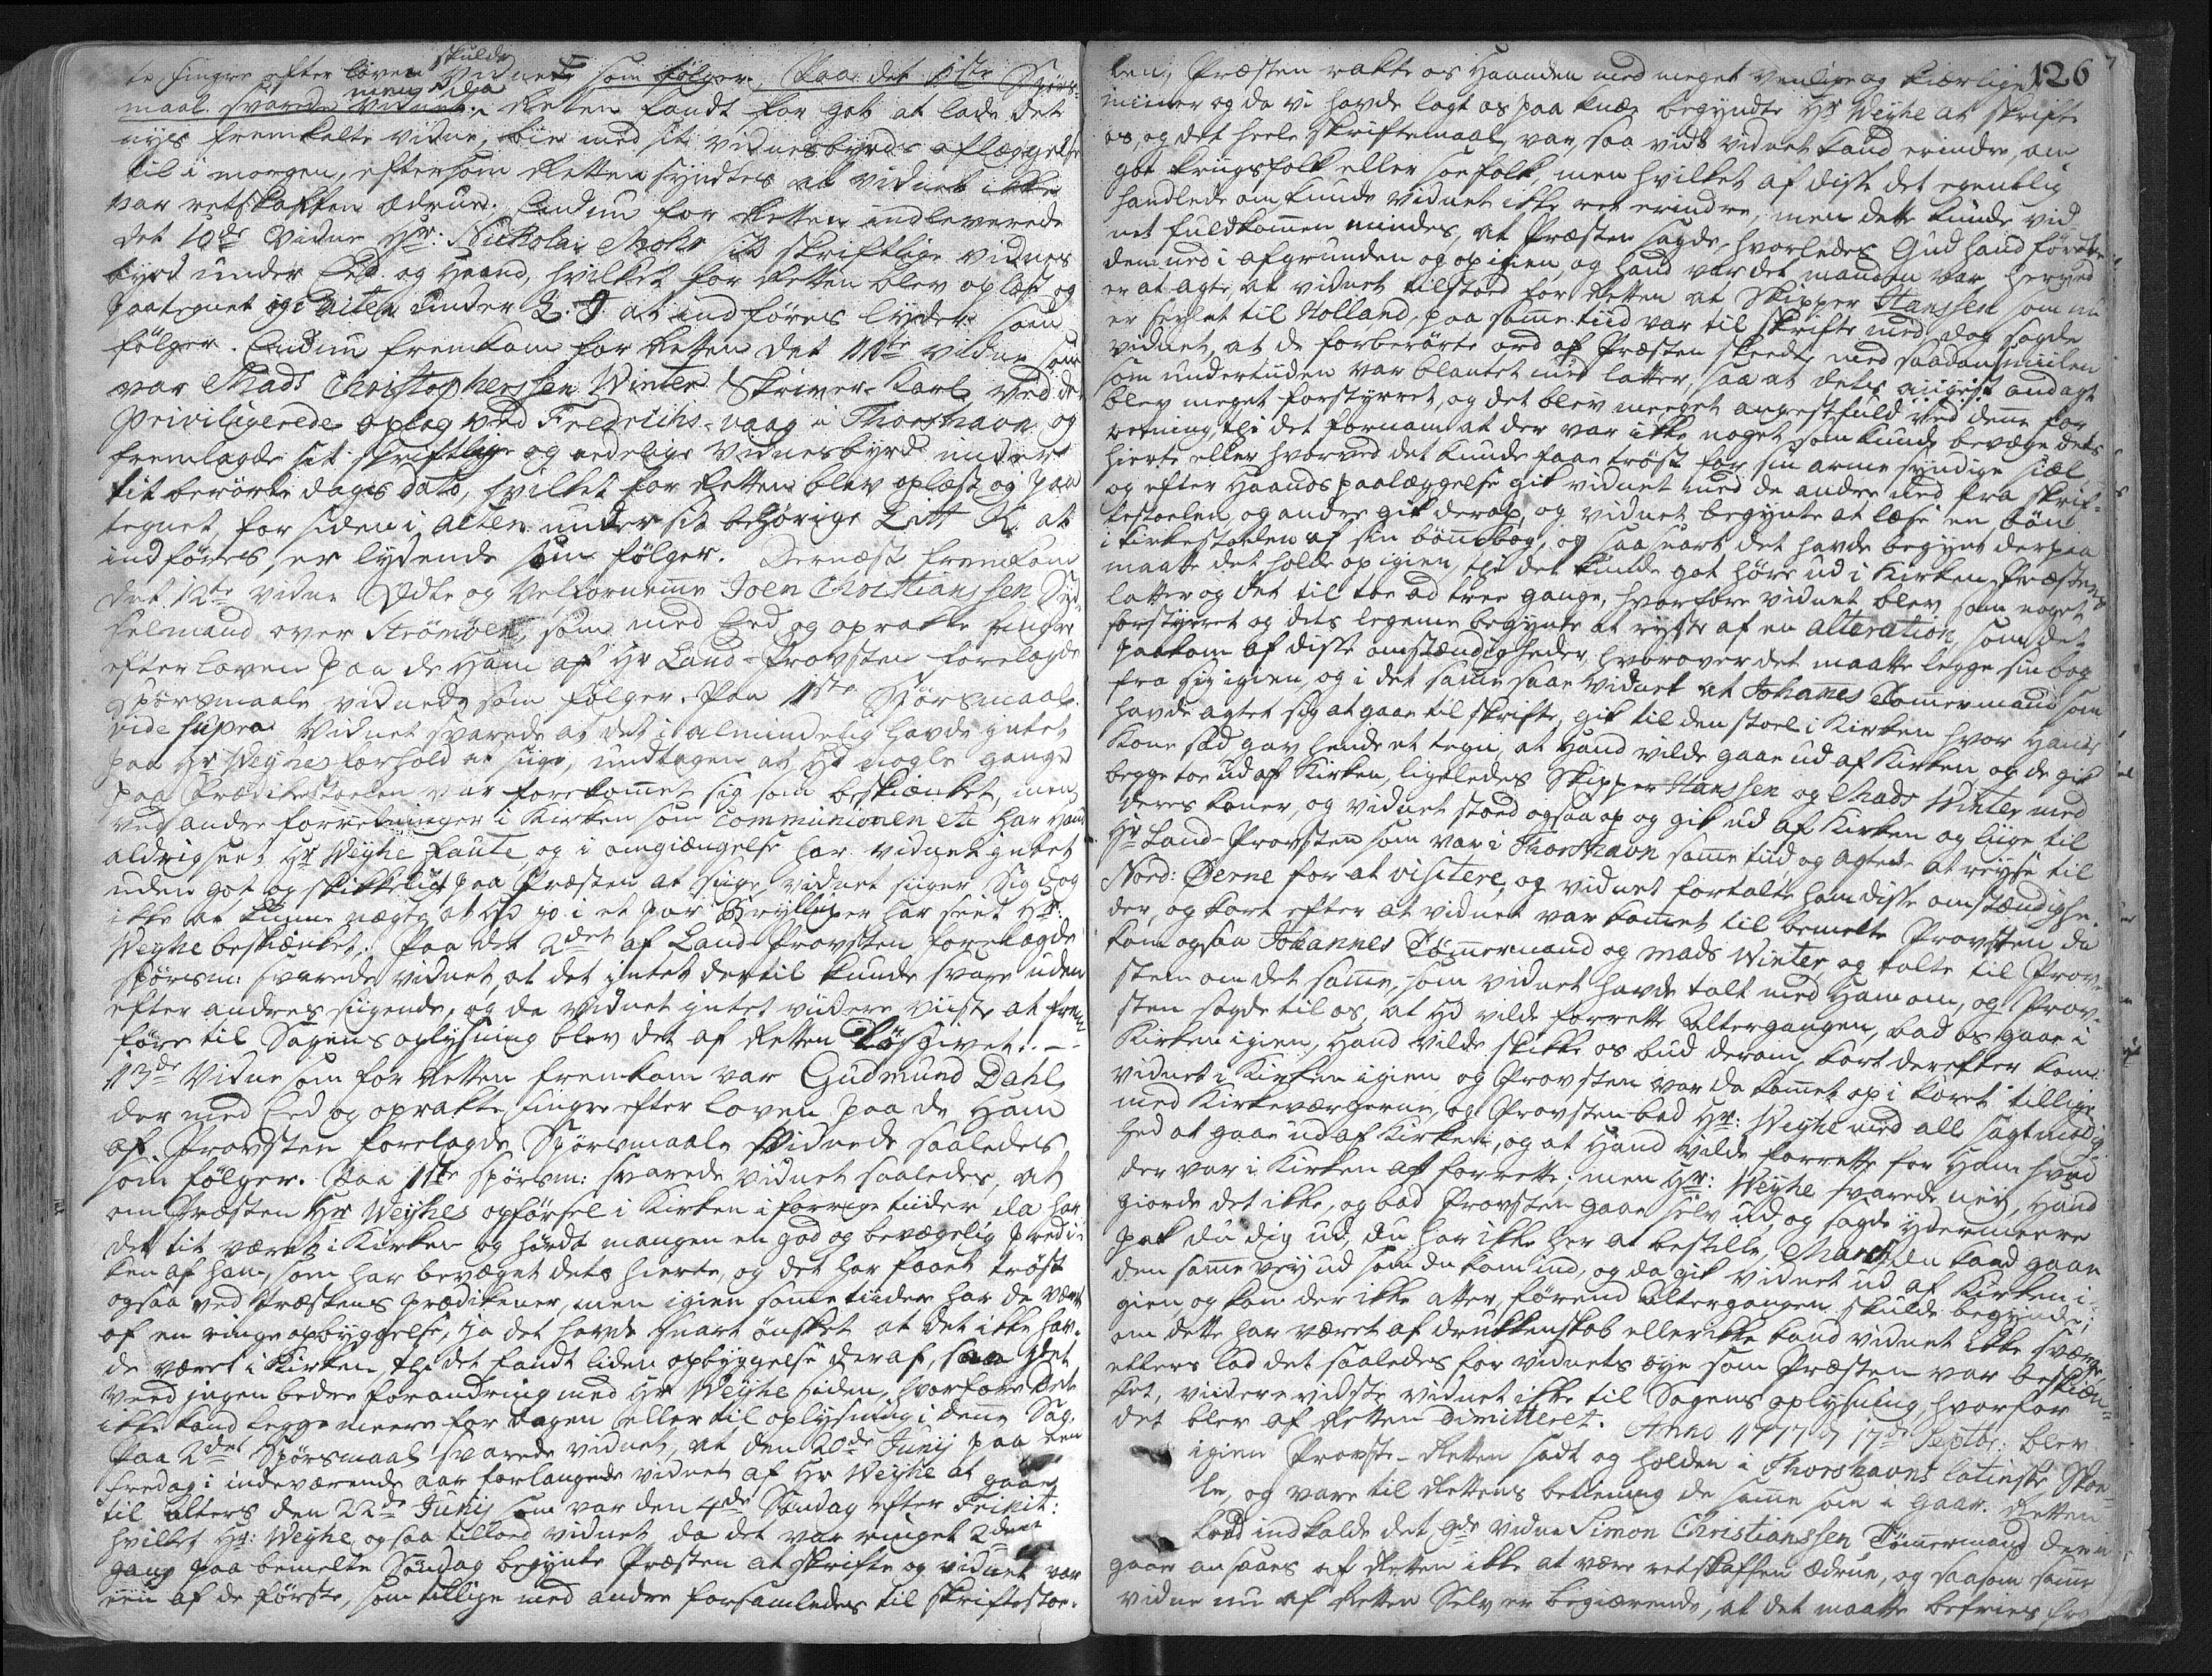 te fingre efter loven skulde vidnet som følger. Paa det 1ste Spörs-
maal svarede vidnet, men da Retten fandt for got at lade det
nyes fremkalte vidne, bie med sit vidnesbyrds aflæggelse
til i morgen, eftersom Retten syndtes at vidnet ikke
var retskaffen ædrue. End nu for Retten indleverede
det 10de Vidne Hr: Nickolai Mohr sit skriftlige vidnes
byrd under Eed og Haand, hvilket for Retten blev oplæst og
paategnet og i acten under L. J. at indføres lyder som
følger. End nu fremkom for Retten det 11te vidne som
var Mads Christophersen Winter Skriver-Karl ved det
Priviligerede oplag ved Fredrichs-vaag i Thorshavn og
fremlagde sit skriftlige og eedelige vidnesbyrd under
tit berörte dags dato, hvilket for Retten blev oplæst og paa
tegnet, for siden i acten under sit behörige Litt K. at
indføres, er lydende som følger. Dernæst fremkand
det 12te vidne Ædle og Velfornemme Joen Christianssen Syd-
selmand over Strömöe, som med Eed og oprakte fingre
efter loven paa de Ham af Hr Land-Provsten forelagde
spørsmaale vidnede som følger. Paa 1ste Spørsmaal
vide supra Vidnet svarede at det i almindelig havde intet
paa Hr Weyhes forhold at sige, undtagen at Hd nogle gange
paa Prædikestoelen var forekommet sig som beskienket, men
ved andre forretninger i Kirken som Communionen etc har Hand
aldrig seet Hr Weyhe faute, og i omgiængelse har vidnet intet
uden got og skikkeligt paa Præsten at sige, vidnet siger sig dog
ikke at kunne nægte at Hd jo i et par Bryllupper har seet Hr:
Weyhe beskienket. Paa det 2det af Land-Provsten forelagde
spörsm: svarede vidnet, at det intet dertil kunde svare uden
efter andres sigende, og da vidnet intet videre viste at frem
føre til Sagens oplysning blev det af Retten Løsgivet. —
13de Vidne som for Retten fremkom var Gudmund Dahl,
der med Eed og oprakte fingre efter loven paa de Ham
af Provsten forelagde Spörsmaale Vidnede saaledes
som følger. Paa 1ste spörsm: svarede vidnet saaledes, at
om Præsten Hr Weyhes opførsel i Kirken i forrige tiider da har
det tit været i Kirken og hördt mangen en god og bevægelig Prædi-
ken af ham, som har bevæget dets hierte, og det har faaet tröst
ogsaa ved Præstens prædikener, men igien somme tiider har de været
af en ringe opbyggelse, ja det havde snart önsket at det ikke hav-
de været i Kirken, thi det fandt liden opbyggelse deraf, saa det
veed ingen bedre forandring med Hr Weyhe siden, hvorfore det
ikke kand legge meere for dagen eller til oplysning i denne Sag.
Paa 2det Spörsmaal svarede vidnet, at den 20de Junij paa een
fredag i indeværende aar forlangede vidnet af Hr Weyhe at gaae
til alters den 22de Junij som var den 4de Söndag efter Trinit:
hvilket Hr: Weyhe ogsaa tillod vidnet, da det var ringet 2den
gang paa bemelte Söndag begynte Præsten at skrifte og vidnet var
een af de förste, som tillige med andre forsamledes til skriftestoe-
126
len, Præsten rakte os Haanden med meget venlige og kierlige
miiner og da vi havde lagt os paa knæ begyndte Hr Weyhe at skrifte
os, og det heele skriftemaal var, saa vidt vidnet kand erindre, om
got krigsfolk eller söefolk, men hvilket af disse det egentlig
handlede om kunde vidnet ikke ret erindre, men dette kunde vid
net fuldkommen mindes, at Præsten sagde, hvorledes Gud hand førte
dem ned i afgrunden og op igien, og hand var det manden var herved
er at agte, at vidnet tilstoed for Retten at Skipper Hanssen som nu
er seylet til Holland, paa samme tiid var til skrifte med, dog sagde
vidnet, at de forberörte ord af Præsten skeede med saadan smiilen
som undertiiden var blantet med latter, saa at dets andagt
blev meget forstyrret, og det blev meget angestfuld ved denne for
retning, thi det fornam at der var ikke noget som kunde bevæge dets
hierte eller hvorved det kunde faae tröst for sin arme syndige siæl
og efter Haands paalæggelse gik vidnet med de andre ned fra skrif-
testoelen, og andre gik derop, og vidnet begynte at læse en bön
i kirkestoelen af sin bönnebog, og saasnart det havde begynt derpaa
maatte det holde op igien, thi det kunde got høre ud i Kirken Præstens
latter og det til toe ad tree gange, hvorfore vidnet blev som noget
forstyrret og dets legeme begynte at ryste af en alteration, som det
paakom af disse omstændigheder, hvorover det maatte legge sin bog
fra sig igien, og i det samme saae vidnet at Johannes Tömmermand som
havde agtet sig at gaae til skrifte, gik til den stoel i Kirken hvor Hands
kone sad gav hende et tegn, at Hand vilde gaae ud af Kirken, og de gik
begge toe ud af Kirken, ligeledes Skipper Hanssen og Mads Winter med
deres koner, og vidnet stoed ogsaa op og gik ud af Kirken og liige til
Hr Land-Provsten som var i Thorshavn samme tiid, og agtede at reyse til
Nord: Øerne for at visitere, og vidnet fortalte ham disse omstændighe
der, og kort efter at vidnet var kommet til bemelte Provsten da
kom ogsaa Johannes Tömmermand og Mads Winter og talte til Prov-
sten om det samme, som vidnet havde talt med Ham om, og Prov-
sten sagde til os, at Hd vilde forrette Altergangen, bad os gaae i
Kirken igien, Hand vilde skikke os bud derom, kort derefter kom
vidnet i Kirken igien og Provsten var da kommet op i Koret tillige
med Kirkeværgerne, og Provsten bad Hr: Weyhe med all sagtmodig-
hed at gaae ud af Kirken, og at Hand vilde forrette for Ham hvad
der var i Kirken at forrette; men Hr: Weyhe svarede ney, Hand
giorde det ikke, og bad Provsten gaae selv ud, og sagde ydermeere
pak du dig ud, du har ikke her at bestille, March, du kand gaae
den samme vey ud som du kom ind, og da gik vidnet ud af Kirken i-
gien og kom der ikke atter, førend Altergangen skulde begynde;
om dette har været af drukkenskab eller ikke kand vidnet ikke sværge,
ellers lod det saaledes for vidnets öye som Præsten var beskien-
ket, viidere vidste vidnet ikke til Sagens oplysning, hvorfor
det blev af Retten Dimitteret. Anno 1777 d 17de Septbr: blev
igien Provste-Retten sadt og holden i Thorshavns latinske Skoe-
le, og vare til Rettens betiening de samme som i Gaar. Retten
lod indkalde det 9de vidne Simon Christianssen Tömmermand der i
gaar ansaaes af Retten ikke at være retskaffen ædrue, og saasom samme
vidne nu af Retten Selv er begiærende, at det maatte befries fra